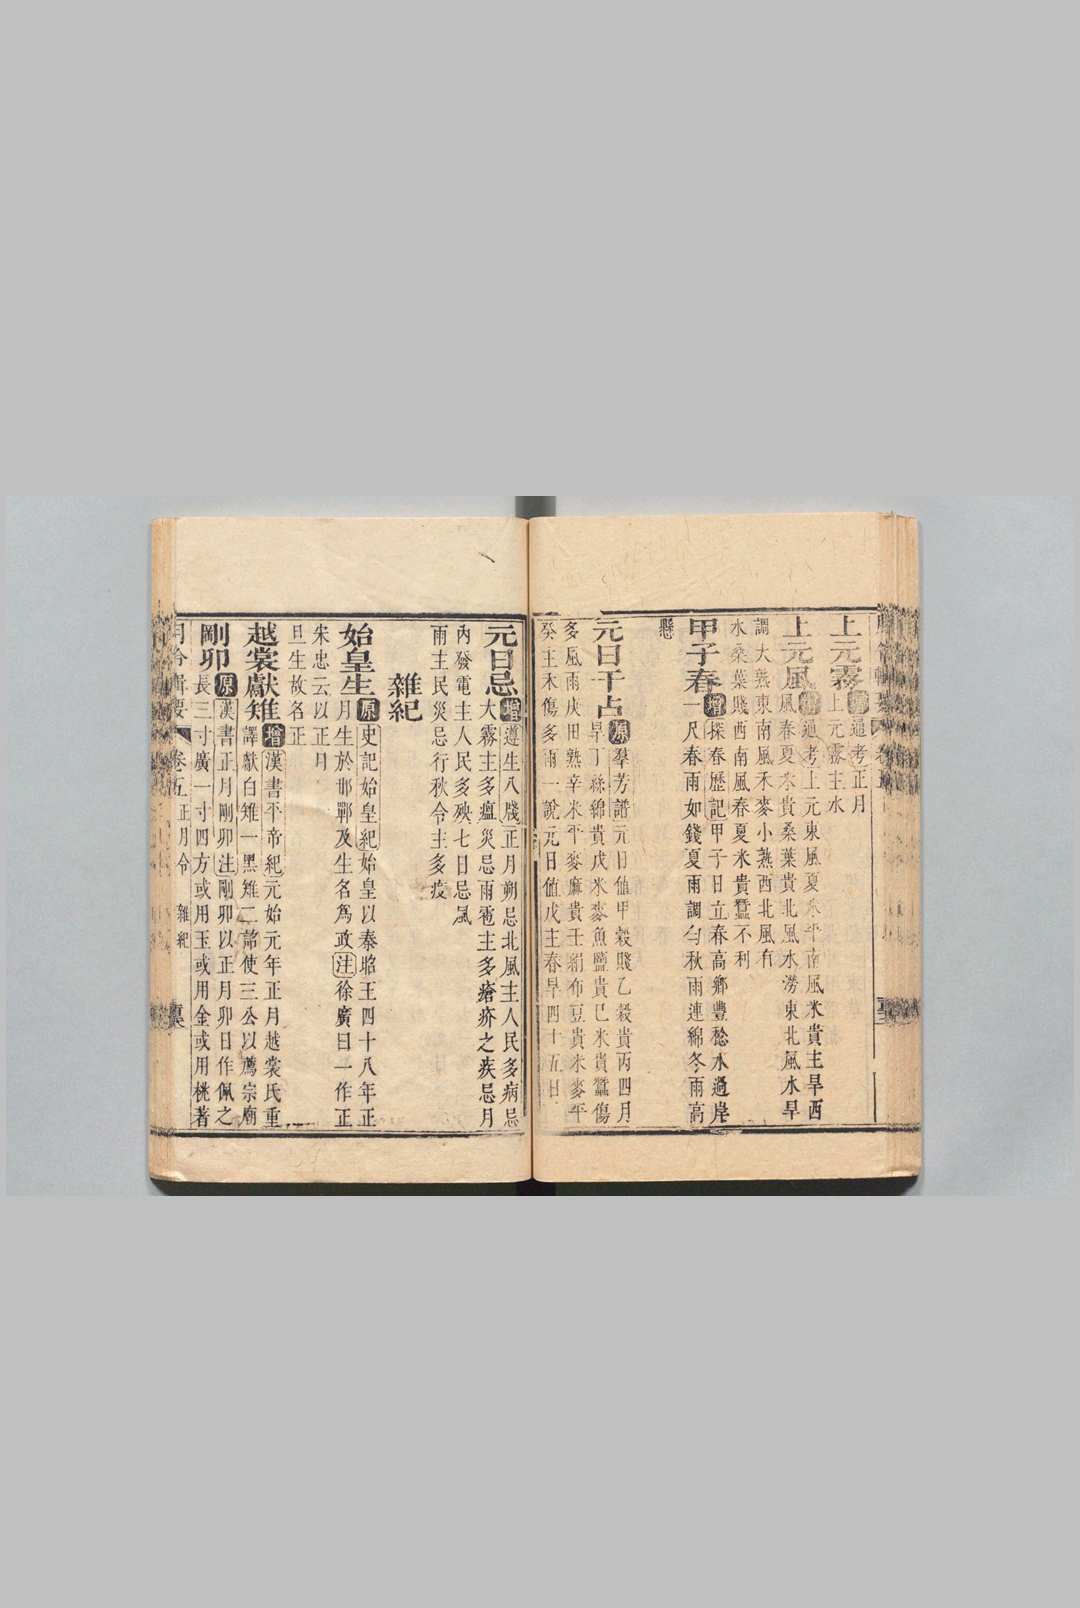 上元霧 增 通考正月
上元霧主水
上元風 增 通考上元東風夏米平南風米貴主旱西
風春夏水貴桑葉貴北風水澇東北風水旱
調大熟東南風禾麥小熟西北風有
水桑葉賤西南風春夏米貴蠶不利
甲子春 增 探春歷記甲子日立春高鄉豐稔水過岸
一尺春雨如錢夏雨調勻秋雨連綿冬雨高
懸
元日干占 原 羣芳譜元日值甲穀賤乙穀貴丙四月
旱丁絲綿貴戊米麥魚鹽貴巳米貴蠶傷
多風雨庚田熟辛米平麥麻貴壬絹布豆貴米麥平
癸主禾傷多雨一說元日值戊主春旱四十五日
元日忌 增 遵生八牋正月朔忌北風主人民多病忌
大霧主多瘟災忌雨雹主多瘡疥之疾忌月
內發電主人民多殃七日忌風
雨主民災忌行秋令主多疫
雜紀
始皇生 原 史記始皇紀始皇以秦昭王四十八年正
月生於邯鄲及生名爲政注徐廣曰一作正
朱忠云以正月
旦生故名正
越裳獻雉 增 漢書平帝紀元始元年正月越裳氏重
譯獻白雉一黑雉二詔使三公以薦宗廟
剛卯 原 漢書正月剛卯注剛卯以正月卯日作佩之
長三寸廣一寸四方或用玉或用金或用桃著
月令輯要 卷五 正月令 雜紀